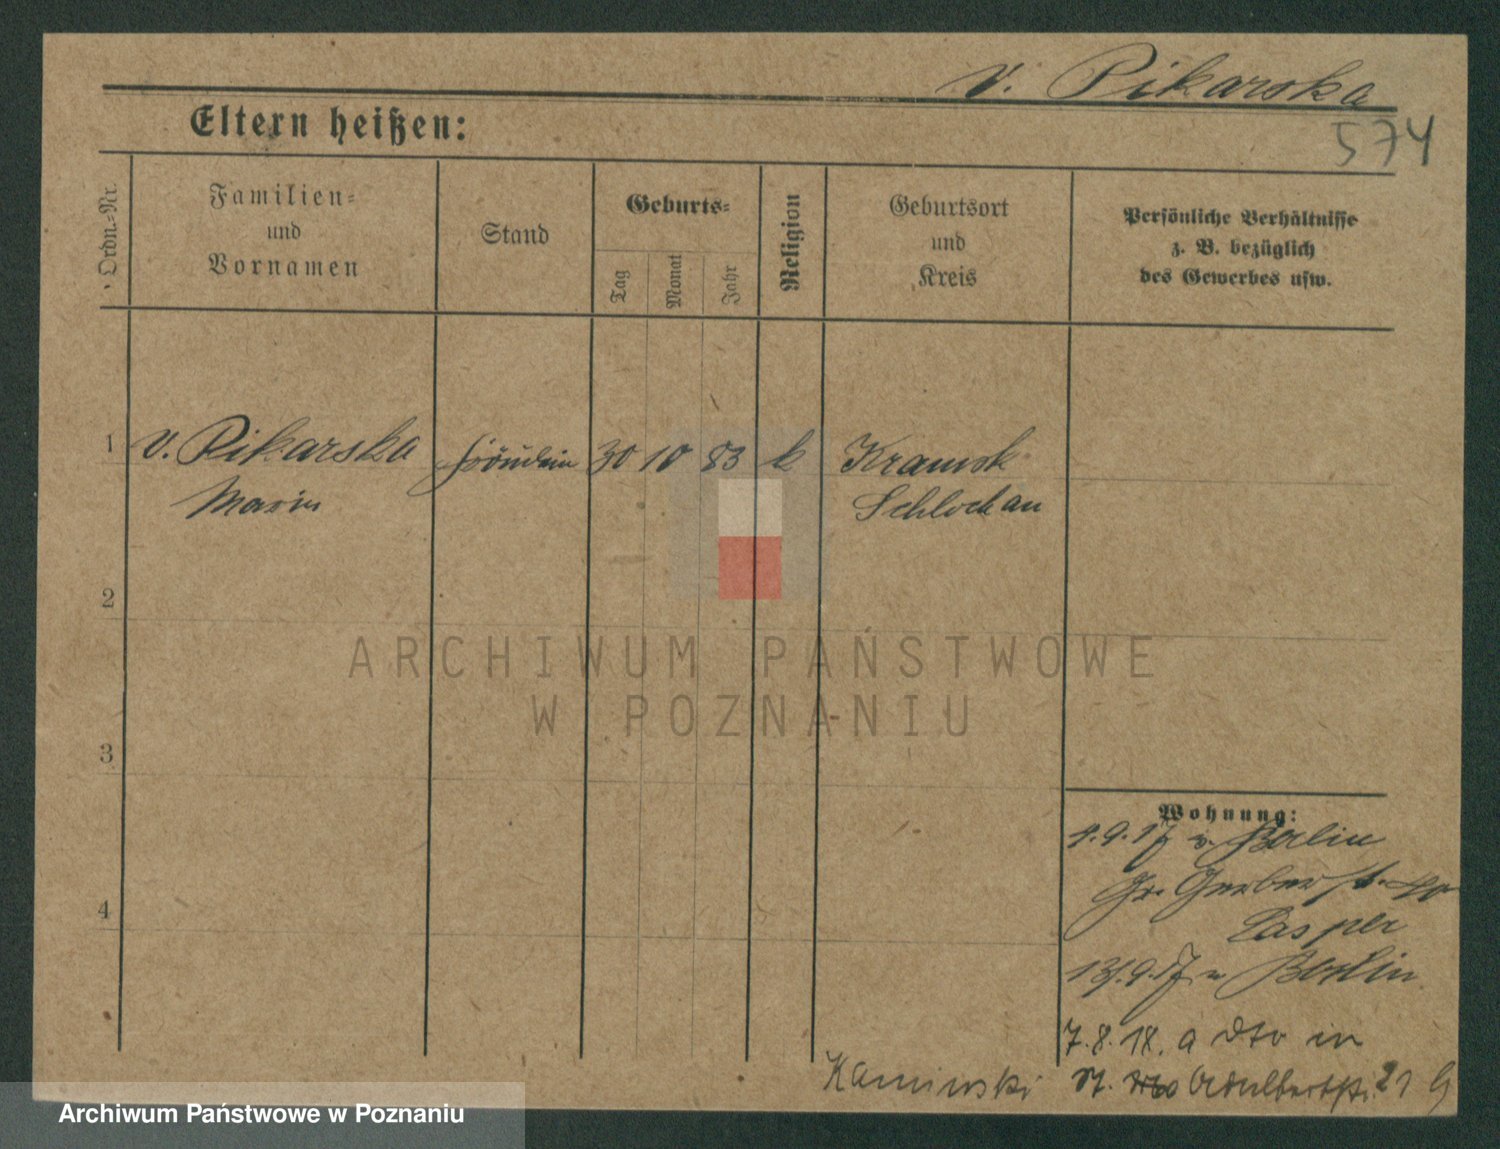 v. Pikarska
Eltern heißen:
574
Ordn.-Nr.
Familien-
und
Vornamen
Stand
Geburts-
Tag
Monat
Jahr
Religion
Geburtsort
und
Kreis
Persönliche Verhältnisse
z. B. bezüglich
des Gewerbes usw.
1 v. Pikarska Fräulein 30 10 83 k Kramsk
Marie Schlochau
2
3
4
Wohnung:
4.9.17 v. Berlin
Gr. Gerberstr. 40
Casper
13.9.17 n Berlin
7.8.18. a dto in
St. Adalbertstr. 21
Kaminski
ARCHIWUM PAŃSTWOWE
W POZNANIU
Archiwum Państwowe w Poznaniu